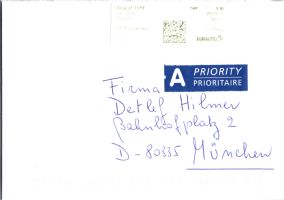 A PRIORITY
PRIORITAIRE
Firma
Detlef Hilmer
Bahnhofplatz 2
D-80335 München